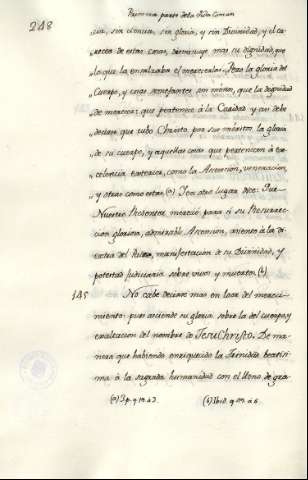 Primera parte de la Vida Comun
248
cia, sin ciencia, sin gloria, y sin Divinidad, y el ca-
recer de estas cosas, disminuye mas su dignidad, que
lo que la ensalzaba el merecerlas. Pero la gloria del
Cuerpo, y cosas semejantes son menos, que la dignidad
de merecer: que pertenece à la Caridad y asi debe
decirse, que tubo Christo por sus meritos la gloria
de su cuerpo, y aquellas cosas que pertenecen à ex-
celencia exterior, como la Ascension, veneracion,
y otras como estas. (a) Y en otro lugar dice: Que
Nuestro Redentor mereció para si su Resurrec-
cion gloriosa, admirable Ascension, asiento à la di-
estra del Padre, manifestacion de su Divinidad, y
potestad judiciaria sobre vivos y muertos. (b)
145 No cabe decirse mas en loor del mereci-
miento: pues asciende su gloria sobre la del cuerpo, y
exaltacion del nombre de Jesu Christo. De ma-
nera que habiendo enriquecido la Trinidad beatisi-
ma à la sagrada humanidad con el lleno de gra-
(a) 3 p. q. 19. a. 3. (b) Ibid. q. 19. a. 6.